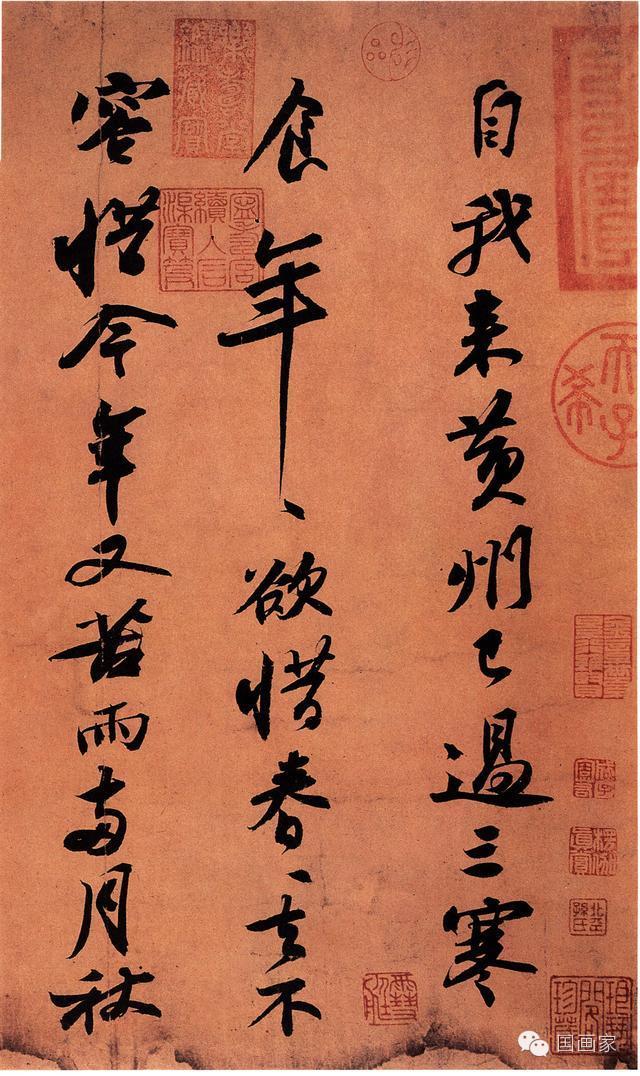 自我来黄州已過三寒
食年、欲惜春、去不
容惜今年又苦雨两月秋
天子
希
国画家